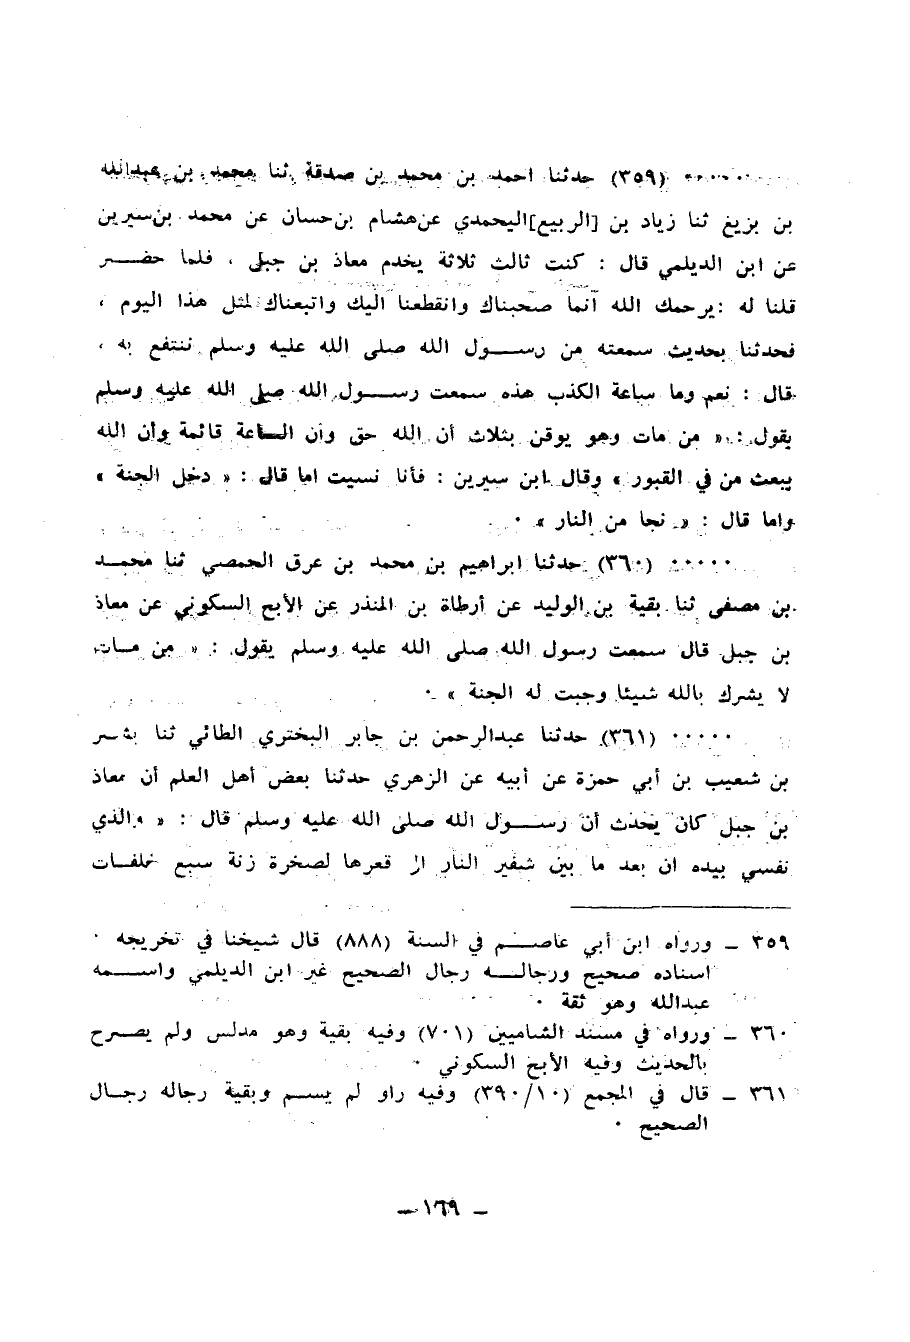 ..... (٣٥٩) حدثنا احمد بن محمد بن صدقة ثنا محمد بن عبدالله
بن بزيغ ثنا زياد بن [الربيع] اليحمدي عن هشام بن حسان عن محمد بن سيرين
عن ابن الديلمي قال : كنت ثالث ثلاثة يخدم معاذ بن جبل ، فلما حضـــر
قلنا له : يرحمك الله انما صحبناك وانقطعنا اليك واتبعناك لمثل هذا اليوم ،
فحدثنا بحديث سمعته من رســـول الله صلى الله عليه وسلم ننتفع به ،
قال : نعم وما ساعة الكذب هذه سمعت رســـول الله صلى الله عليه وسلم
يقول : « من مات وهو يوقن بثلاث أن الله حق وأن الساعة قائمة وأن الله
يبعث من في القبور » وقال ابن سيرين : فأنا نسيت اما قال : « دخل الجنة »
واما قال : « نجا من النار » .
..... (٣٦٠) حدثنا ابراهيم بن محمد بن عرق الحمصي ثنا محمـد
بن مصفى ثنا بقية بن الوليد عن أرطاة بن المنذر عن الأبح السكوني عن معاذ
بن جبل قال سمعت رسول الله صلى الله عليه وسلم يقول : « من مـات
لا يشرك بالله شيئا وجبت له الجنة » .
..... (٣٦١) حدثنا عبدالرحمن بن جابر البختري الطائي ثنا بشـر
بن شعيب بن أبي حمزة عن أبيه عن الزهري حدثنا بعض أهل العلم أن معاذ
بن جبل كان يحدث أن رســـول الله صلى الله عليه وسلم قال : « والذي
نفسي بيده ان بعد ما بين شفير النار الى قعرها لصخرة زنة سبع خلفـات
٣٥٩ ـ ورواه ابن أبي عاصـــم في السنة (٨٨٨) قال شيخنا في تخريجه .
اسناده صحيح ورجالـــه رجال الصحيح غير ابن الديلمي واســـمه
عبدالله وهو ثقة .
٣٦٠ ـ ورواه في مسند الشاميين (٧٠١) وفيه بقية وهو مدلس ولم يصـرح
بالحديث وفيه الأبح السكوني .
٣٦١ ـ قال في المجمع (٣٩٠/١٠) وفيه راو لم يســم وبقية رجاله رجـال
الصحيح .
ـ ١٦٩ ـ